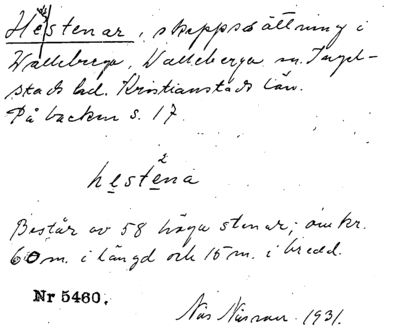 Hestenar, skeppssättning i
Valleberga, Valleberga sn. Ingel-
stads hd. Kristianstads län.
På backen s. 17.
2
hestena
Består av 58 höga stenar; omkr.
60 m. i längd och 15 m. i bredd.
Nr 5460.
1931.